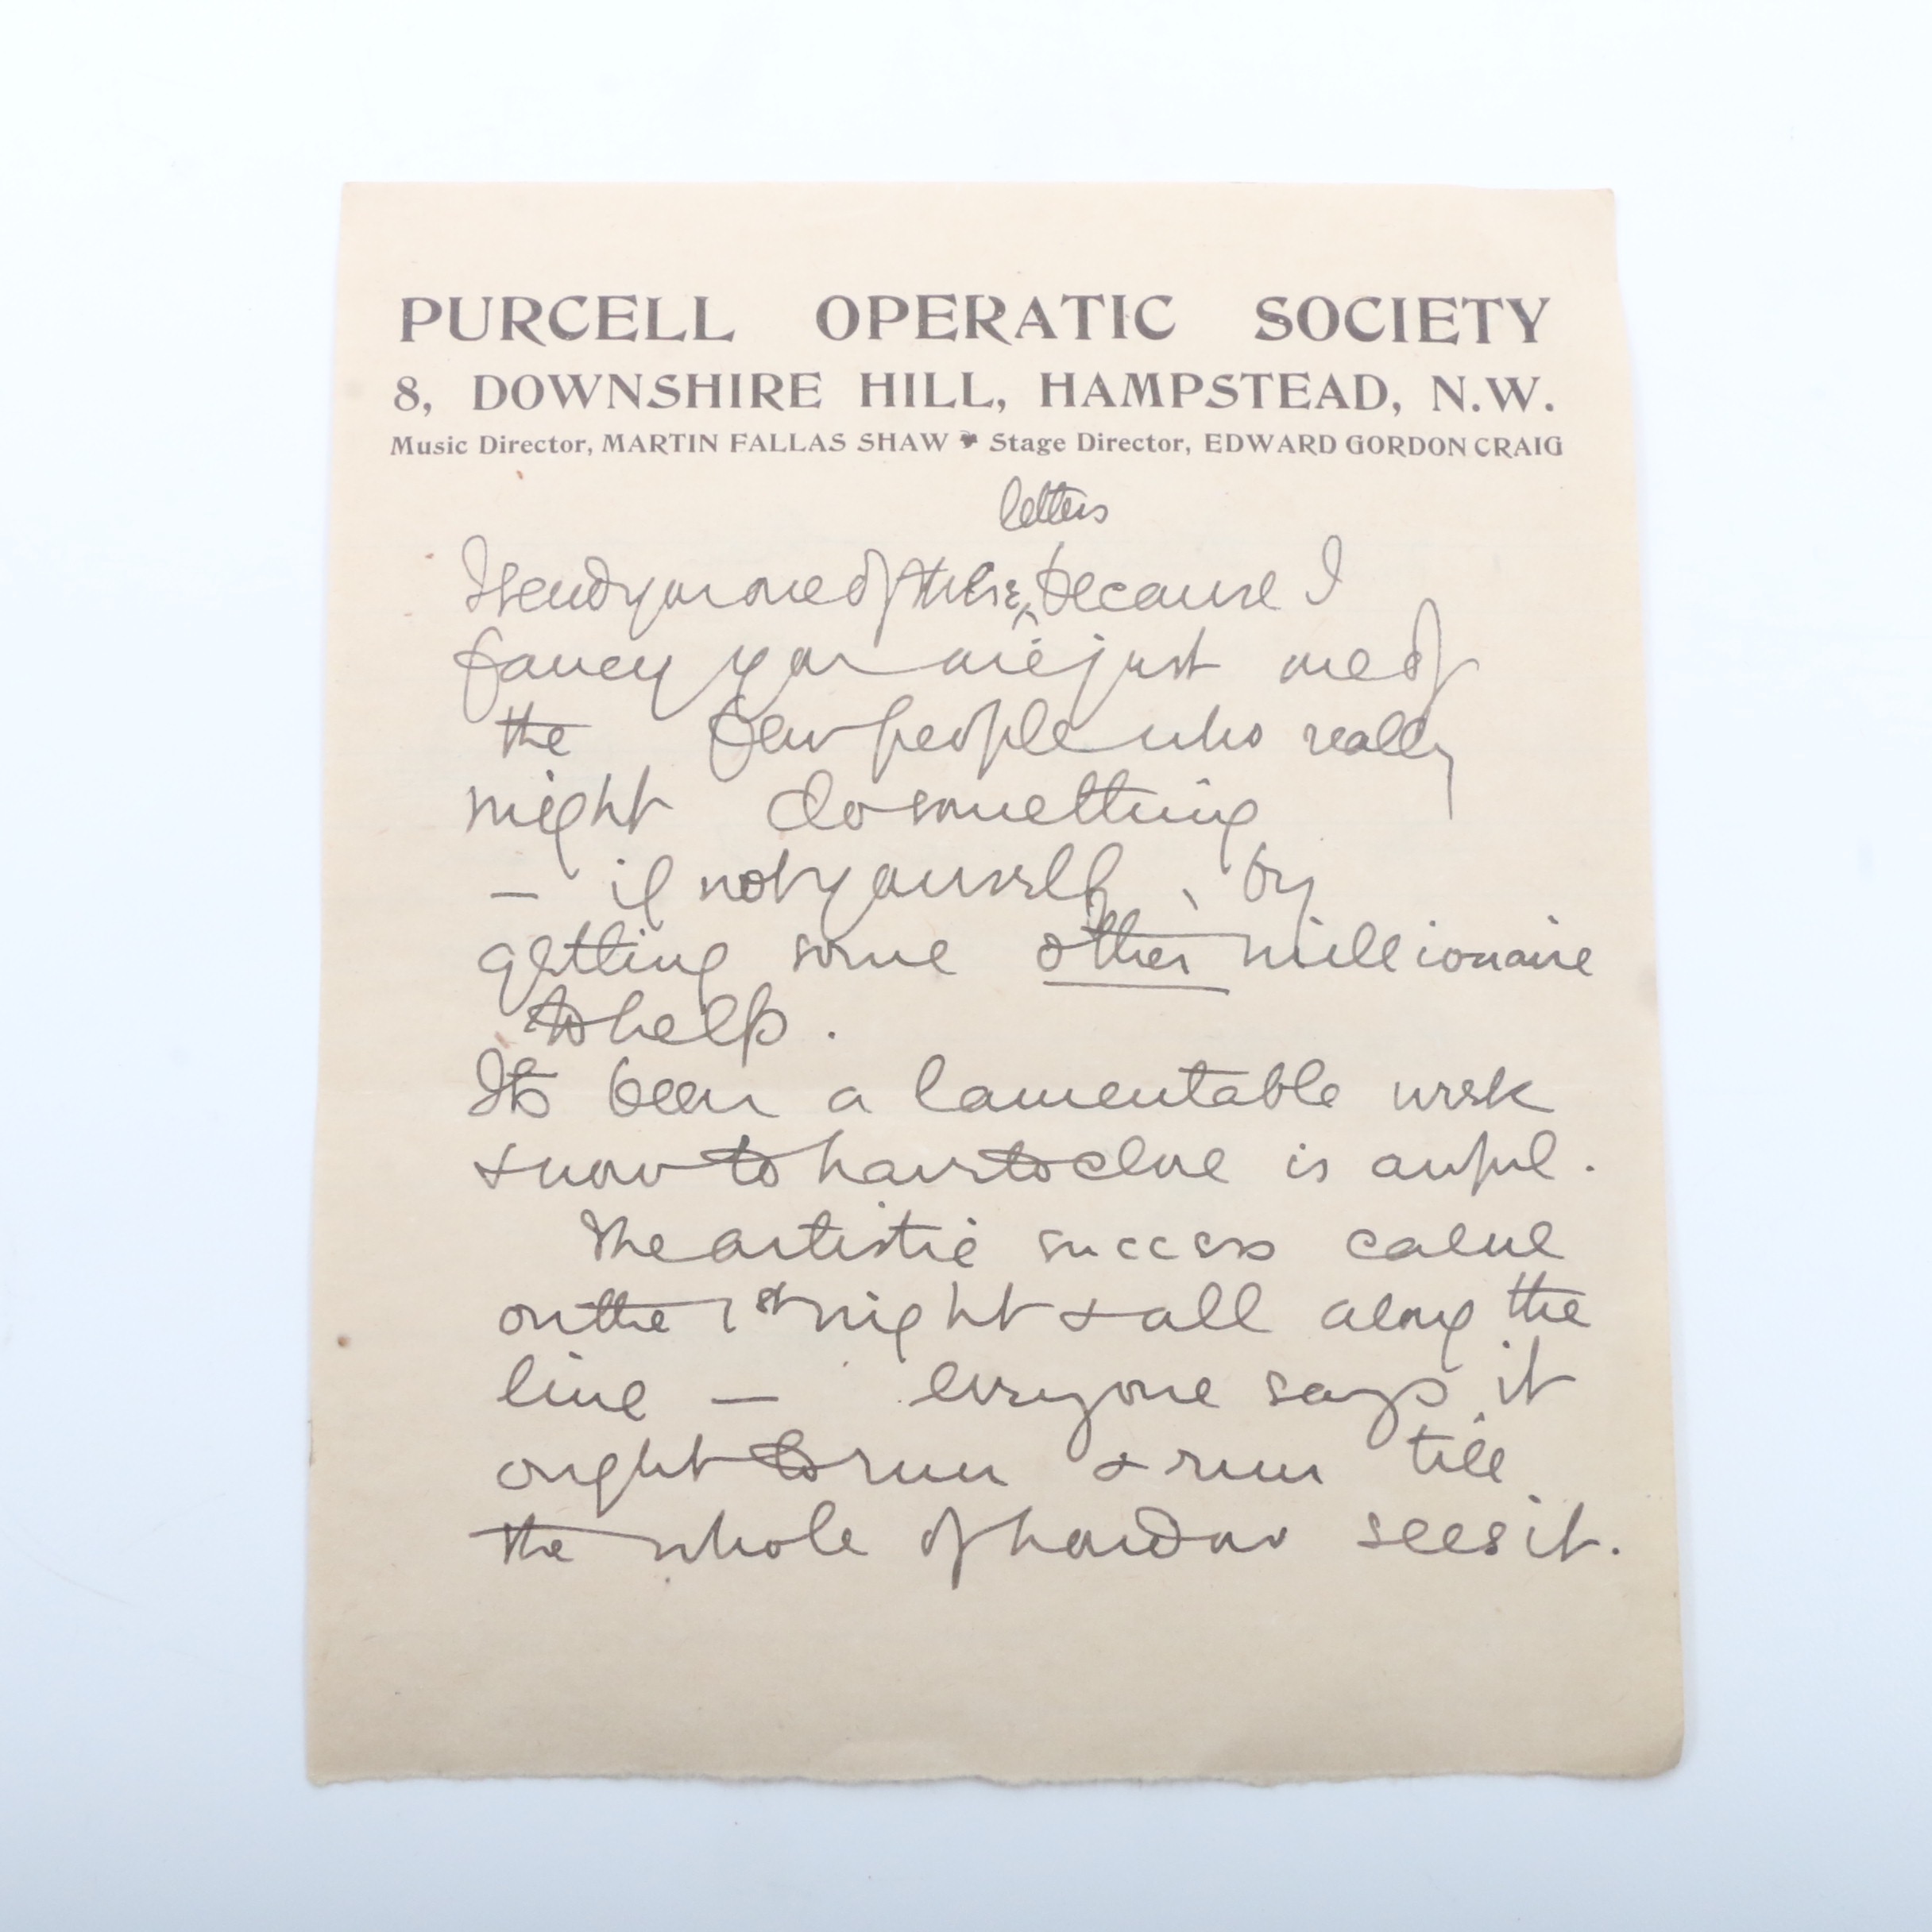 PURCELL OPERATIC SOCIETY
8, DOWNSHIRE HILL, HAMPSTEAD, N.W.
Music Director, MARTIN FALLAS SHAW Stage Director, EDWARD GORDON CRAIG
letters
I send you one of these, because I
fancy you are just one of
the few people who really
might do something
— if not yourself, by
getting some other millionaire
to help.
Its been a lamentable week
& now to have to close is awful.
The artistic success came
on the 1st night & all along the
line — everyone says it
ought to run & run till
the whole of London sees it.